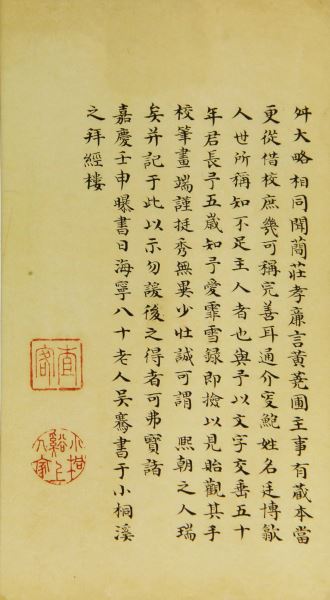 舛大略相同聞蕳莊孝廉言黃蕘圃主事有藏本當
更從借校庶幾可稱完善耳通介叟鮑姓名廷博歙
人世所稱知不足主人者也與予以文字交垂五十
年君長予五歲知予愛霏雪錄即撿以見貽觀其手
校筆畫端謹挺秀無異少壯誠可謂 熙朝之人瑞
矣并記于此以示勿諼後之得者可弗寶諸
嘉慶壬申曝書日海寧八十老人吳騫書于小桐溪
之拜經樓
小桐
谿上
人家